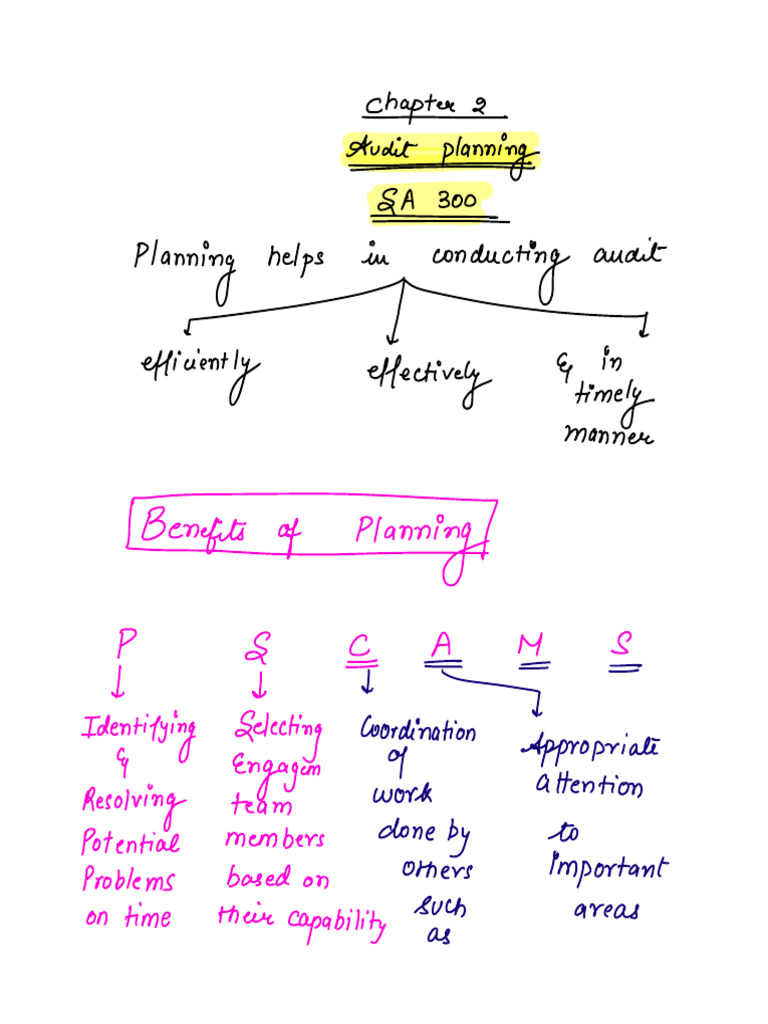 Chapter 2
Audit planning
SA 300
Planning helps in conducting audit
efficiently
effectively
& in
timely
manner
Benefits of Planning
P S C A M S
Identifying
&
Resolving
Potential
Problems
on time
Selecting
Engagem
team
members
based on
their capability
Coordination
of
work
done by
others
such
as
Appropriate
attention
to
important
areas